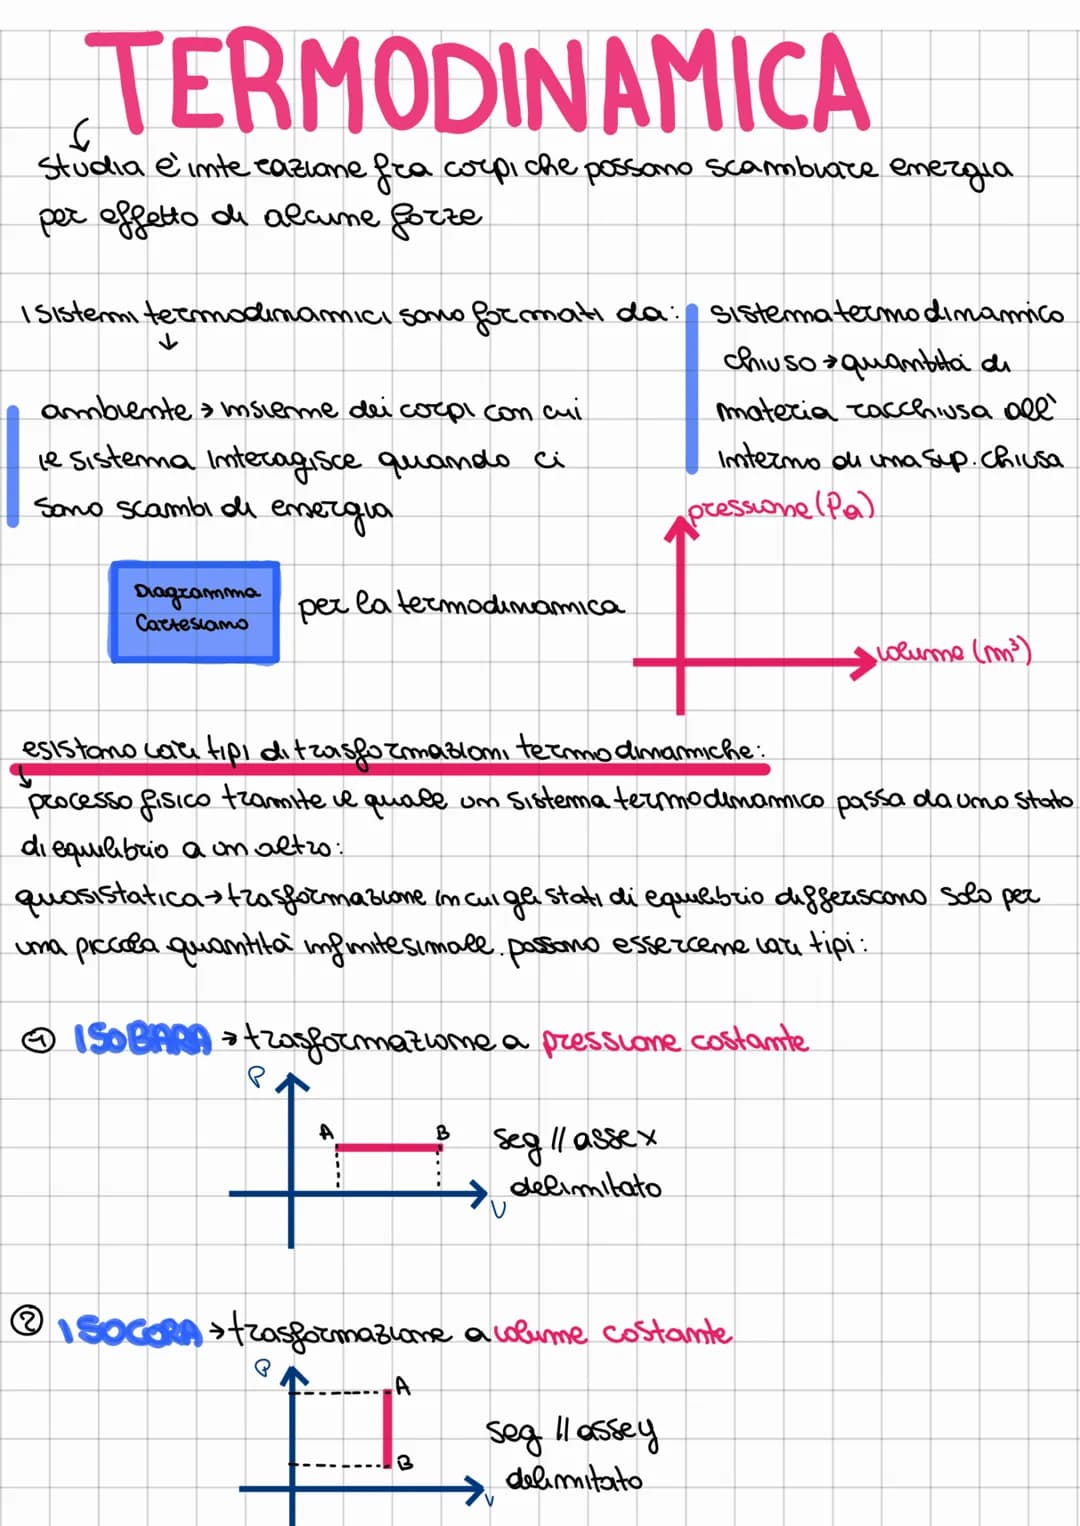 TERMODINAMICA
Studia l'interazione fra corpi che possono scambiare energia
per effetto di alcune forze
I sistemi termodinamici sono formati da:
ambiente → insieme dei corpi con cui
il sistema interagisce quando ci
sono scambi di energia
sistema termodinamico
chiuso → quantità di
materia racchiusa all'
interno di una sup. chiusa
Diagramma
Cartesiano
per la termodinamica
pressione (Pa)
volume (m³)
esistono vari tipi di trasformazioni termodinamiche:
processo fisico tramite il quale un sistema termodinamico passa da uno stato
di equilibrio a un altro:
quasistatica → trasformazione in cui gli stati di equilibrio differiscono solo per
una piccola quantità infinitesimale. possono essercene vari tipi:
① ISOBARA → trasformazione a pressione costante
P
A B
seg // asse x
delimitato
V
② ISOCORA → trasformazione a volume costante
P
A
B
seg // asse y
delimitato
V